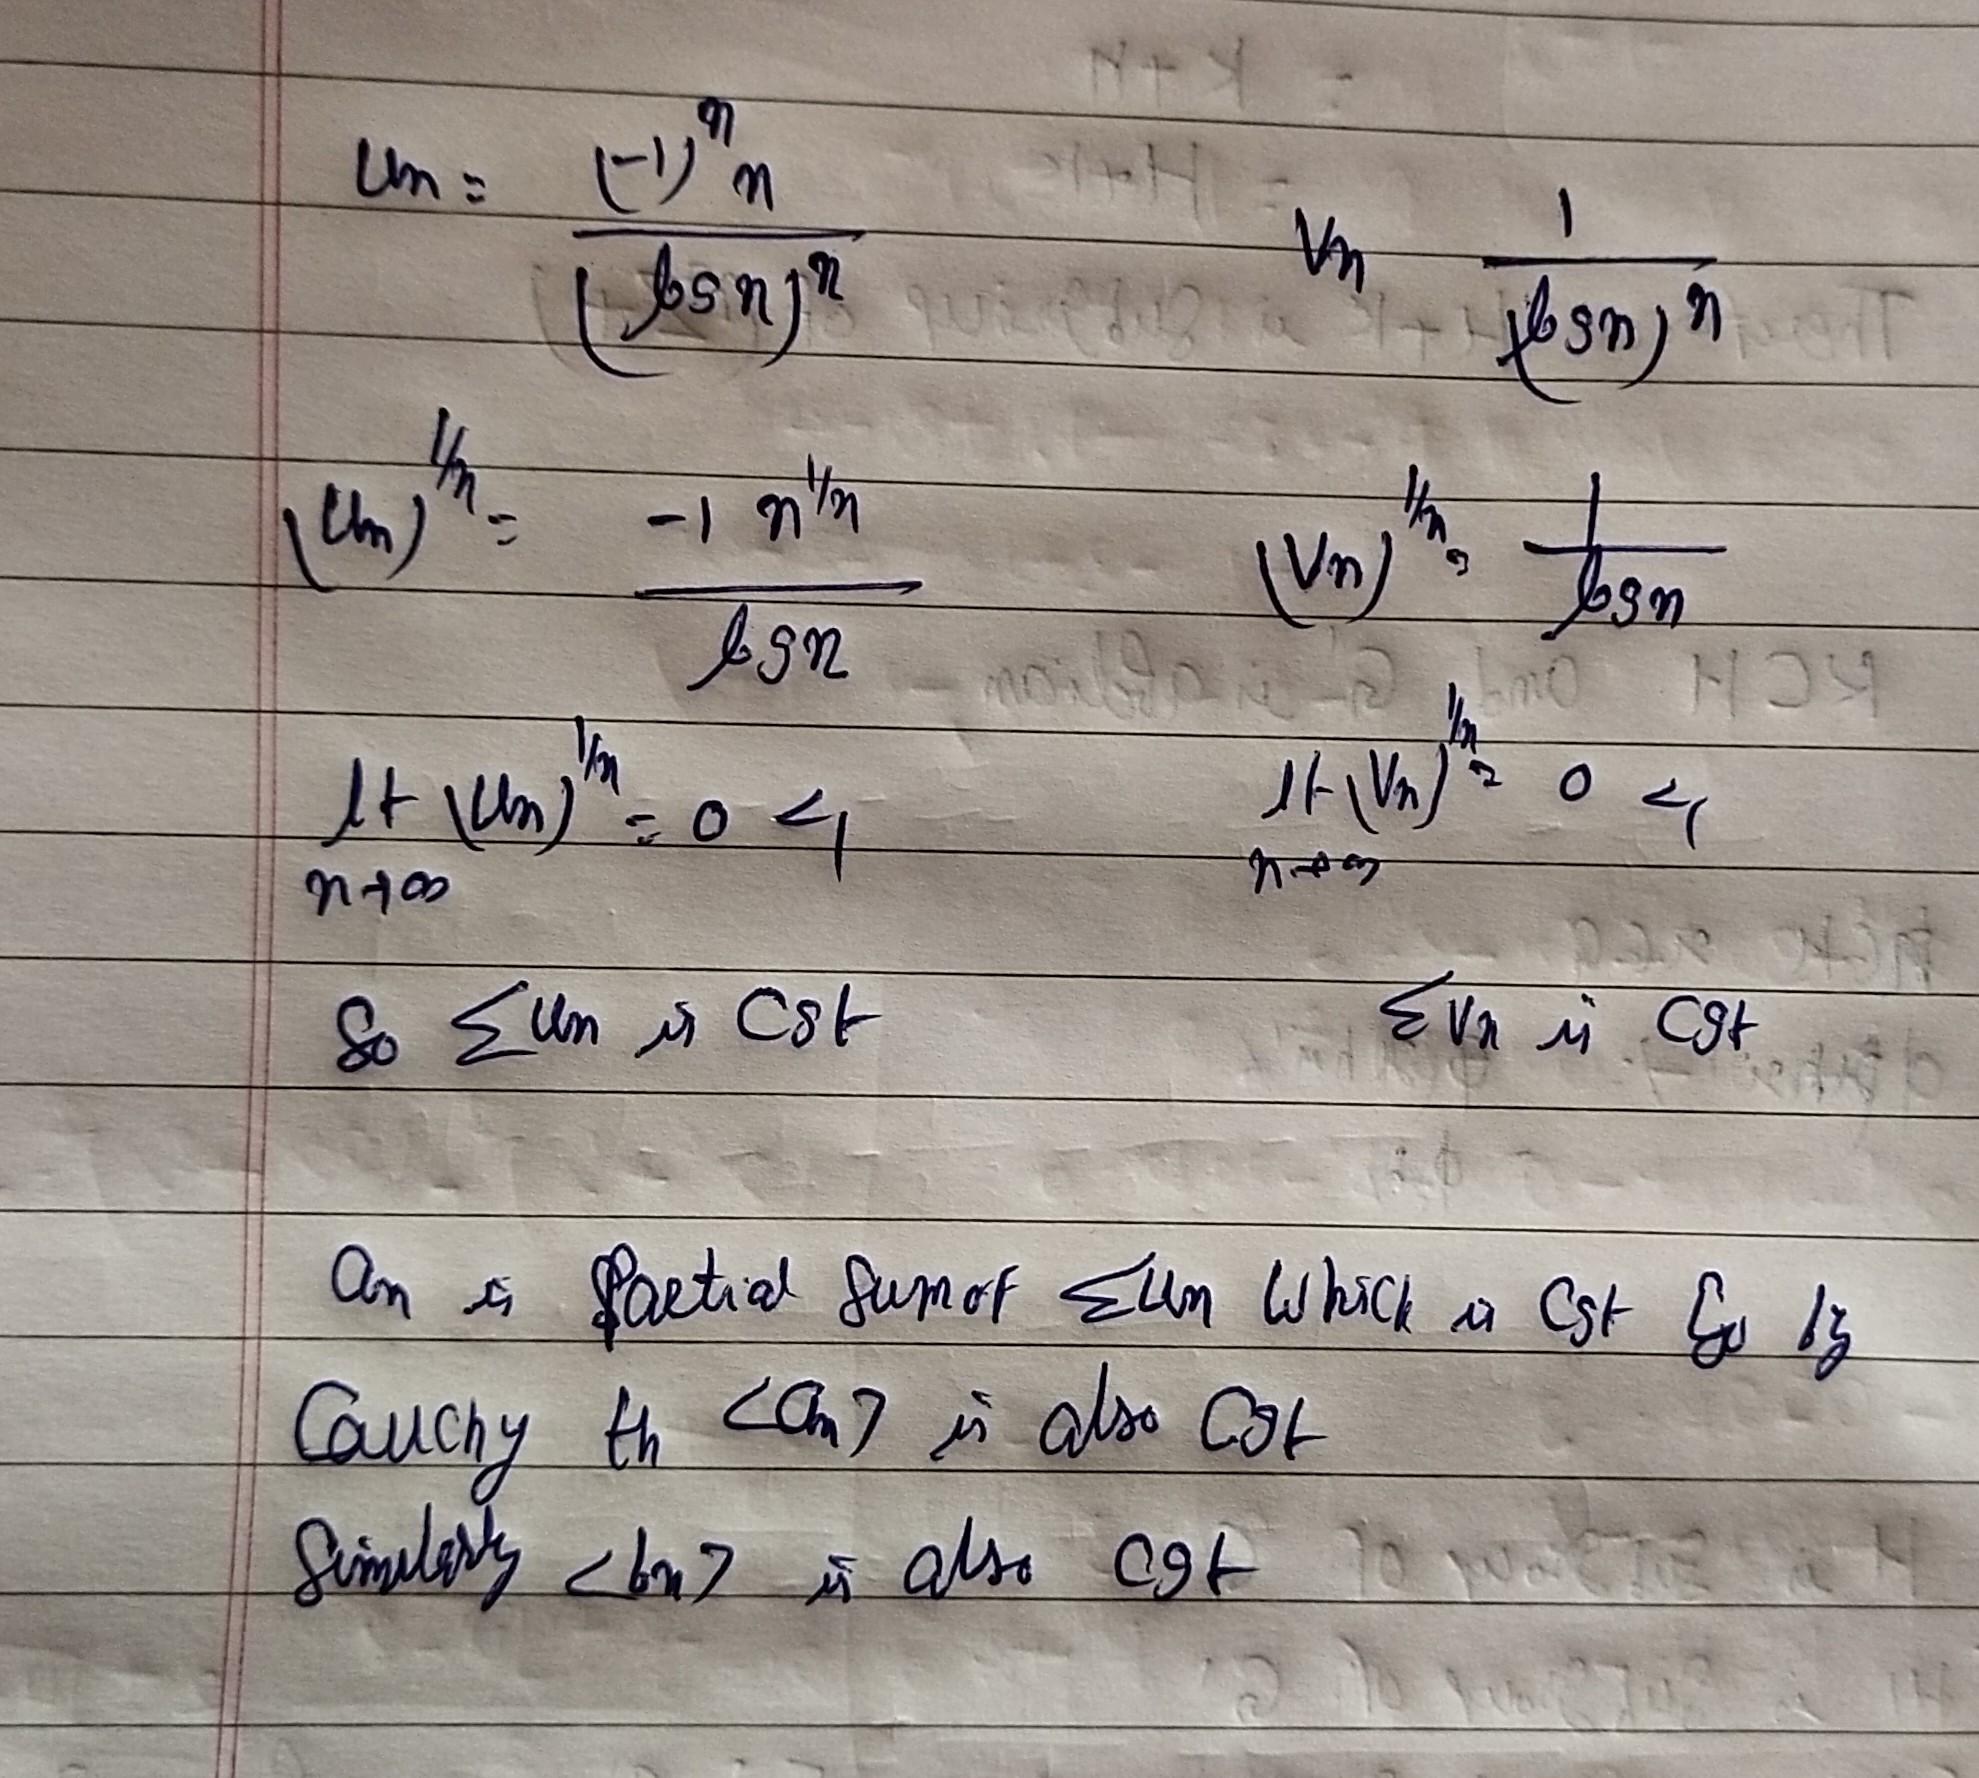 Un = (-1)^n n / (log n)^n    Vn 1 / (log n)^n
(Un)^1/n = -1 n^1/n / log n    (Vn)^1/n = 1 / log n
lt (Un)^1/n = 0 < 1    lt (Vn)^1/n = 0 < 1
n→∞    n→∞
So ΣUn is Cgt    ΣVn is Cgt
an is Partial Sum of ΣUn Which is Cgt So by
Cauchy th <an> is also Cgt
Similarly <bn> is also Cgt